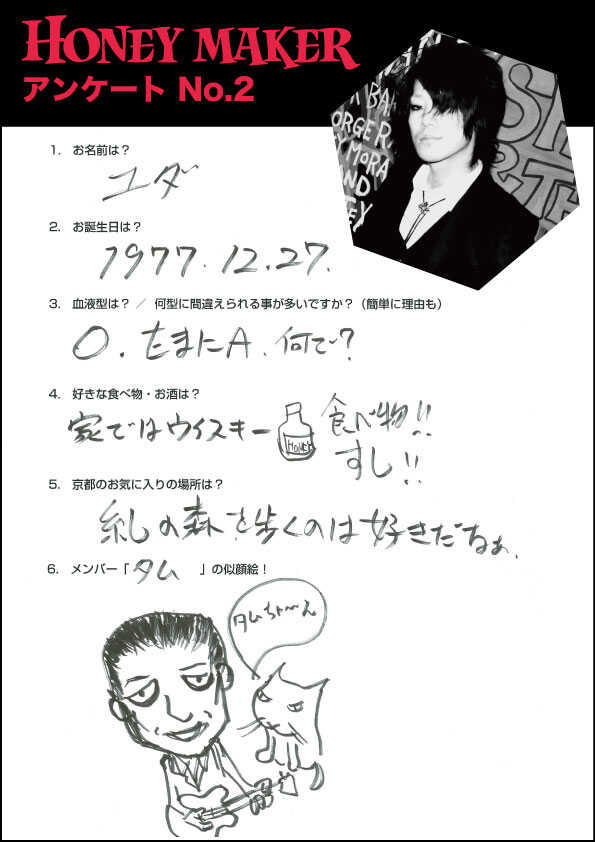 HONEY MAKER
アンケート No.2
1. お名前は？
ユダ
2. お誕生日は？
1977.12.27.
3. 血液型は？ ／ 何型に間違えられる事が多いですか？（簡単に理由も）
O.たまにA.何で？
4. 好きな食べ物・お酒は？
家ではウイスキー
HONEY
食べ物!!
すし!!
5. 京都のお気に入りの場所は？
糺の森を歩くのは好きだなぁ、
6. メンバー「タム」の似顔絵！
タムちゃん
BA
ORGER
MORA
AND